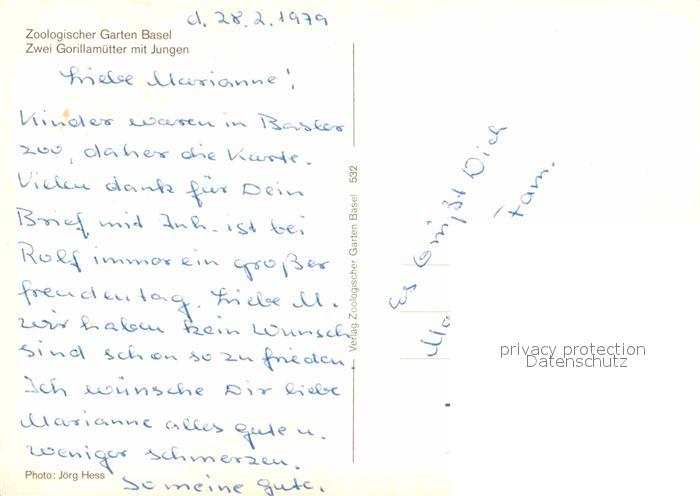 d. 28.2.1979
Zoologischer Garten Basel
Zwei Gorillamütter mit Jungen
Liebe Marianne!
Kinder waren in Basler
Zoo, daher die Karte.
Vielen dank für Dein
Brief mit Inh. ist bei
Rolf immer ein großer
freudentag. Liebe M.
wir haben kein Wunsch
sind schon so zufrieden.
Ich wünsche Dir liebe
Marianne alles gute u.
weniger schmerzen.
So meine gute.
Photo: Jörg Hess
Verlag Zoologischer Garten Basel 532
Es grüßt Dich
Fam.
privacy protection
Datenschutz